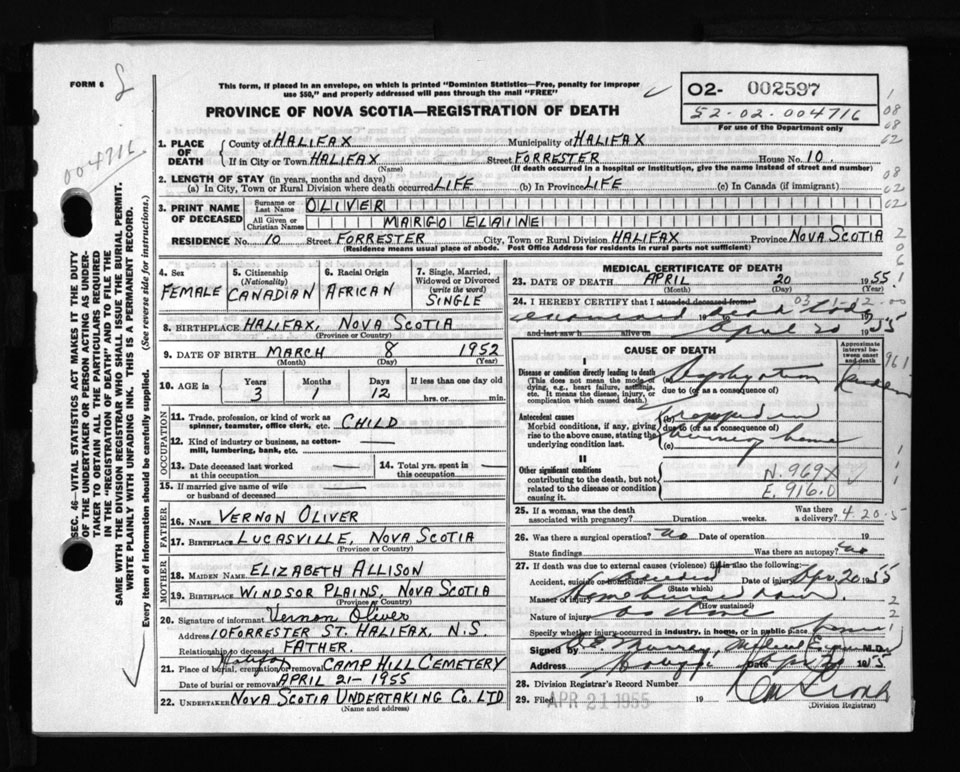 FORM 6
This form, if placed in an envelope, on which is printed "Dominion Statistics—Free, penalty for improper
use $50," and properly addressed will pass through the mail "FREE"
PROVINCE OF NOVA SCOTIA—REGISTRATION OF DEATH
02- 002597
52-02-004716
For use of the Department only
004716
SEC. 46—VITAL STATISTICS ACT MAKES IT THE DUTY
OF THE UNDERTAKER OR PERSON ACTING AS UNDER-
TAKER TO OBTAIN ALL THE PARTICULARS REQUIRED
IN THE "REGISTRATION OF DEATH" AND TO FILE THE
SAME WITH THE DIVISION REGISTRAR WHO SHALL ISSUE THE BURIAL PERMIT.
WRITE PLAINLY WITH UNFADING INK. THIS IS A PERMANENT RECORD.
Every item of information should be carefully supplied. (See reverse side for instructions.)
1. PLACE OF DEATH
County of HALIFAX Municipality of HALIFAX
If in City or Town HALIFAX Street FORRESTER House No. 10.
(Name) (If death occurred in a hospital or institution, give the name instead of street and number)
2. LENGTH OF STAY (in years, months and days)
(a) In City, Town or Rural Division where death occurred LIFE (b) In Province LIFE (c) In Canada (if immigrant)
3. PRINT NAME OF DECEASED
Surname or Last Name OLIVER
All Given or Christian Names MARGO ELAINE
RESIDENCE No. 10 Street FORRESTER City, Town or Rural Division HALIFAX Province NOVA SCOTIA
(Residence means usual place of abode. Post Office Address for residents in rural parts not sufficient)
4. Sex FEMALE
5. Citizenship (Nationality) CANADIAN
6. Racial Origin AFRICAN
7. Single, Married, Widowed or Divorced (write the word) SINGLE
8. BIRTHPLACE HALIFAX, NOVA SCOTIA
(Province or Country)
9. DATE OF BIRTH MARCH 8 1952
(Month) (Day) (Year)
10. AGE in Years 3 Months 1 Days 12 If less than one day old
hrs. or min.
OCCUPATION
11. Trade, profession, or kind of work as
spinner, teamster, office clerk, etc. CHILD
12. Kind of industry or business, as cotton-
mill, lumbering, bank, etc.
13. Date deceased last worked
at this occupation
14. Total yrs. spent in
this occupation
15. If married give name of wife
or husband of deceased
FATHER
16. NAME VERNON OLIVER
17. BIRTHPLACE LUCASVILLE, NOVA SCOTIA
(Province or Country)
MOTHER
18. MAIDEN NAME ELIZABETH ALLISON
19. BIRTHPLACE WINDSOR PLAINS, NOVA SCOTIA
(Province or Country)
20. Signature of informant Vernon Oliver
Address 10 FORRESTER ST. HALIFAX, N.S.
Relationship to deceased FATHER.
21. Place of burial, cremation or removal Halifax CAMP HILL CEMETERY
Date of burial or removal APRIL 21-1955
22. UNDERTAKER NOVA SCOTIA UNDERTAKING CO. LTD
(Name and address)
MEDICAL CERTIFICATE OF DEATH
23. DATE OF DEATH APRIL 20 1955
(Month) (Day) (Year)
24. I HEREBY CERTIFY that I attended deceased from
examined dead body 19
and last saw h alive on April 20 1955
CAUSE OF DEATH
Approximate interval between onset and death
I
Disease or condition directly leading to death (a) Asphyxiation
(This does not mean the mode of
dying, e.g., heart failure, asthenia,
etc. It means the disease, injury, or
complication which caused death.)
due to (or as a consequence of)
Antecedent causes (b) trapped in
Morbid conditions, if any, giving
rise to the above cause, stating the
underlying condition last.
due to (or as a consequence of)
(c) burning home
II
Other significant conditions
contributing to the death, but not
related to the disease or condition
causing it.
N. 969X
E. 916.0
25. If a woman, was the death
associated with pregnancy? Duration weeks. Was there a delivery?
4.20.5
26. Was there a surgical operation? no Date of operation 19
State findings Was there an autopsy? no
27. If death was due to external causes (violence) fill in also the following:
Accident, suicide or homicide? Accident Date of injury Apr. 20 1955
(State which)
Manner of injury Home burned down
(How sustained)
Nature of injury as above
Specify whether injury occurred in industry, in home, or in public place home
Signed by Murray M.D.
Address Halifax Date Apr 20 1955
28. Division Registrar's Record Number
29. Filed APR 21 1955 19
(Division Registrar)